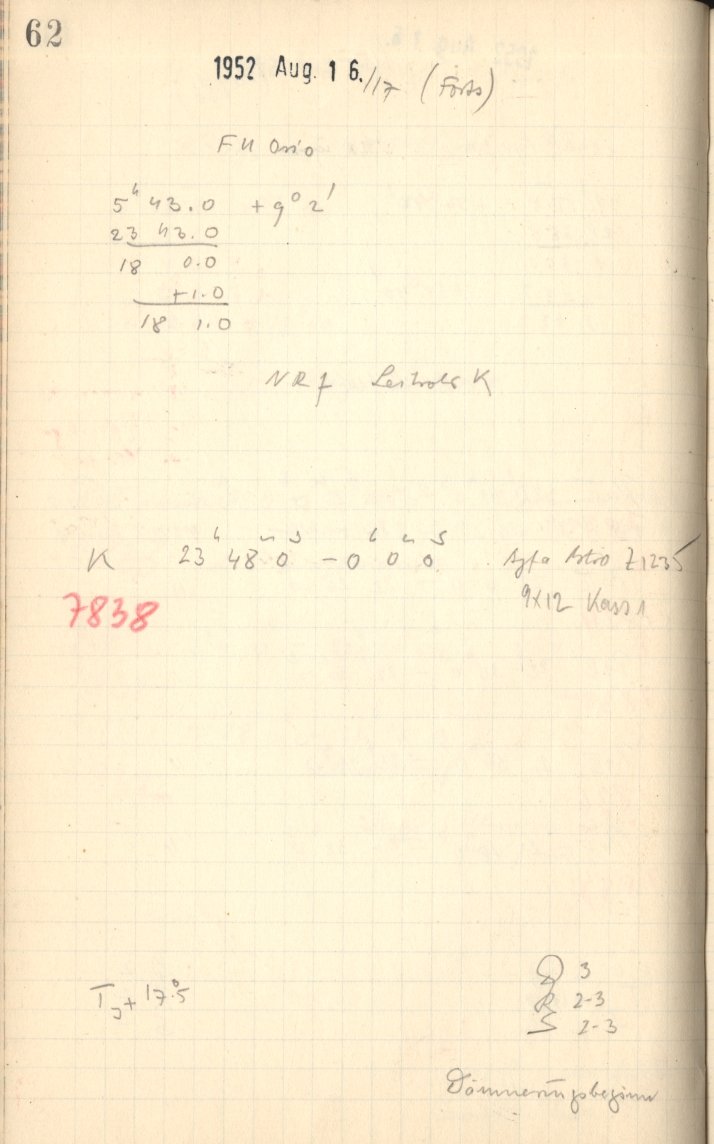 62
1952 Aug. 16./17 (Forts)
FU Orio
5ʰ 43.0 + 9° 2'
23 43.0
18 0.0
+1.0
18 1.0
NRf Leitrohr K
K 23ʰ 48ᵐ 0ˢ - 0ʰ 0ᵐ 0ˢ Agfa Astro Z1235
7838
9x12 Kass 1
T_J + 17.°5
D 3
R 2-3
S 2-3
Dämmerungsbeginn